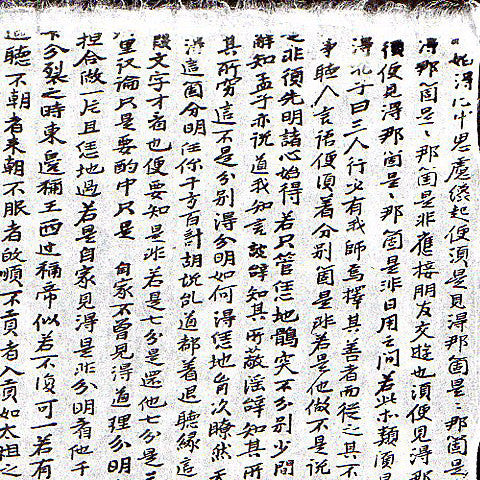 得心中思慮纔起便須是見得那箇是那箇是
得那箇是那箇是非應接朋友交遊也須便見得那
便見得那箇是那箇是非日用之間若此等類須是
得孔子曰三人行必有我師焉擇其善者而從之其不
事聽人言語便須着分别箇是非若是他做不是说
是非須先明諸心始得若只管恁地鶻突不分别少間
知孟子亦说道我知言詖辞知其所蔽滛辞知其所
其所穷這不是分别得分明如何得恁地胷次瞭然天
得這箇分明任你千方百計胡说乱道都着退聽緣這
段文字才看也便要知是非若是七分是還他七分是三
里议論只是要酌中只是自家不曾見得道理分明
担合做一片且恁地過若是自家見得是非分明看他千
下分裂之時東邊稱王西过稱帝似若不復可一若有
退聽不朝者来朝不服者敀順不貢者入貢如太祖之